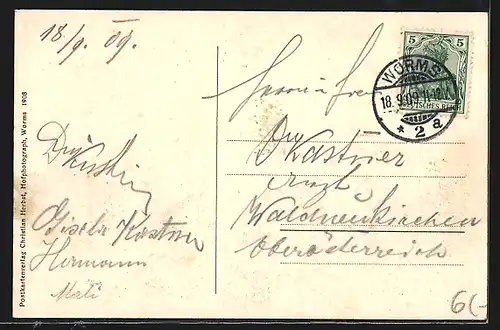 18/9. 09.
5 5
DEUTSCHES REICH
WORMS
18.9.09.11-12V.
* 2 a
Herrn u Frau
Dr Kastner
Arzt
Waldneukirchen
Oberösterreich
Gisela Kastner
Hermann
6/-
Postkartenverlag Christian Herbst, Hofphotograph, Worms 1908